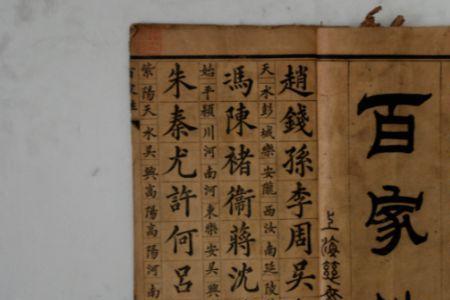 百家
上海
趙錢孫李周吳
天水彭城樂安隴西汝南延陵
馮陳褚衛蔣沈
始平穎川河南河東樂安吳興
朱秦尤許何呂
紫陽天水吳興高陽高陽河